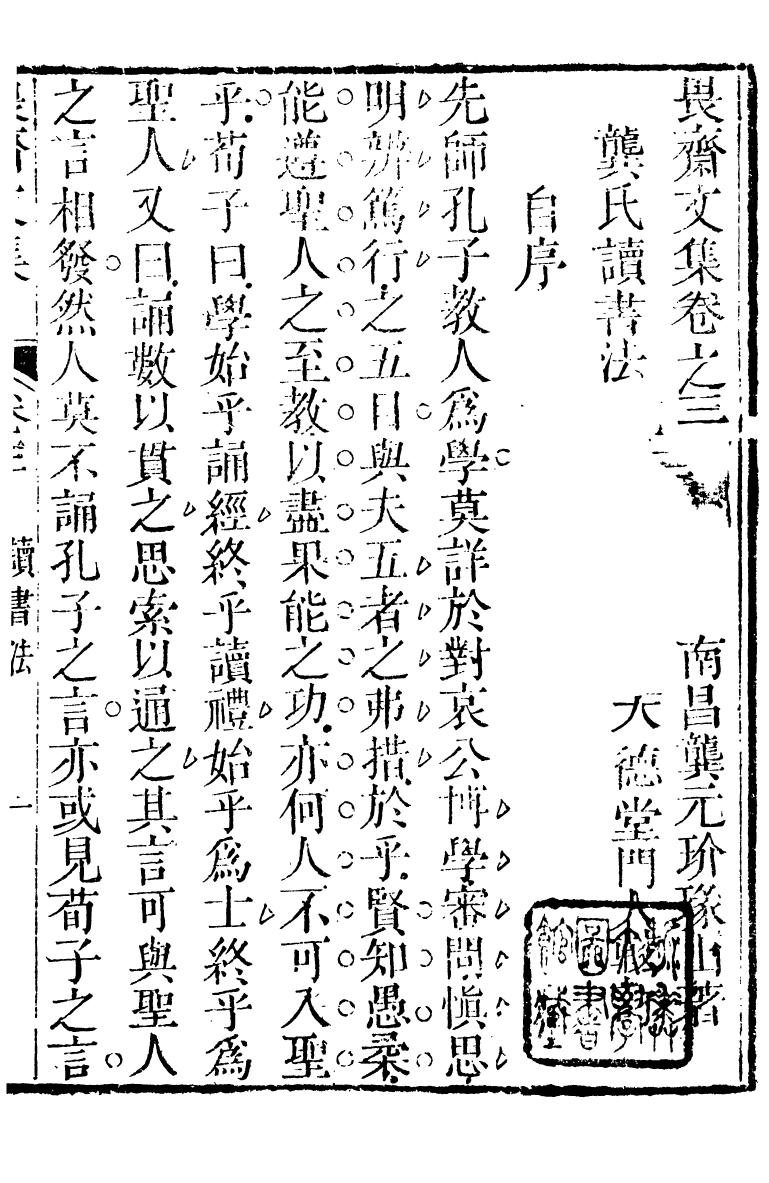 畏齋文集卷之三
南昌龔元玠琢山著
龔氏讀書法
大德堂門人
自序
先師孔子教人爲學莫詳於對哀公博學審問愼思
明辨篤行之五目與夫五者之弗措於乎賢知愚柔
能遵聖人之至教以盡果能之功亦何人不可入聖
乎荀子曰學始乎誦經終乎讀禮始乎爲士終乎爲
聖人又曰誦數以貫之思索以通之其言可與聖人
之言相發然人莫不誦孔子之言亦或見荀子之言
畏齋文集
卷三
讀書法
一